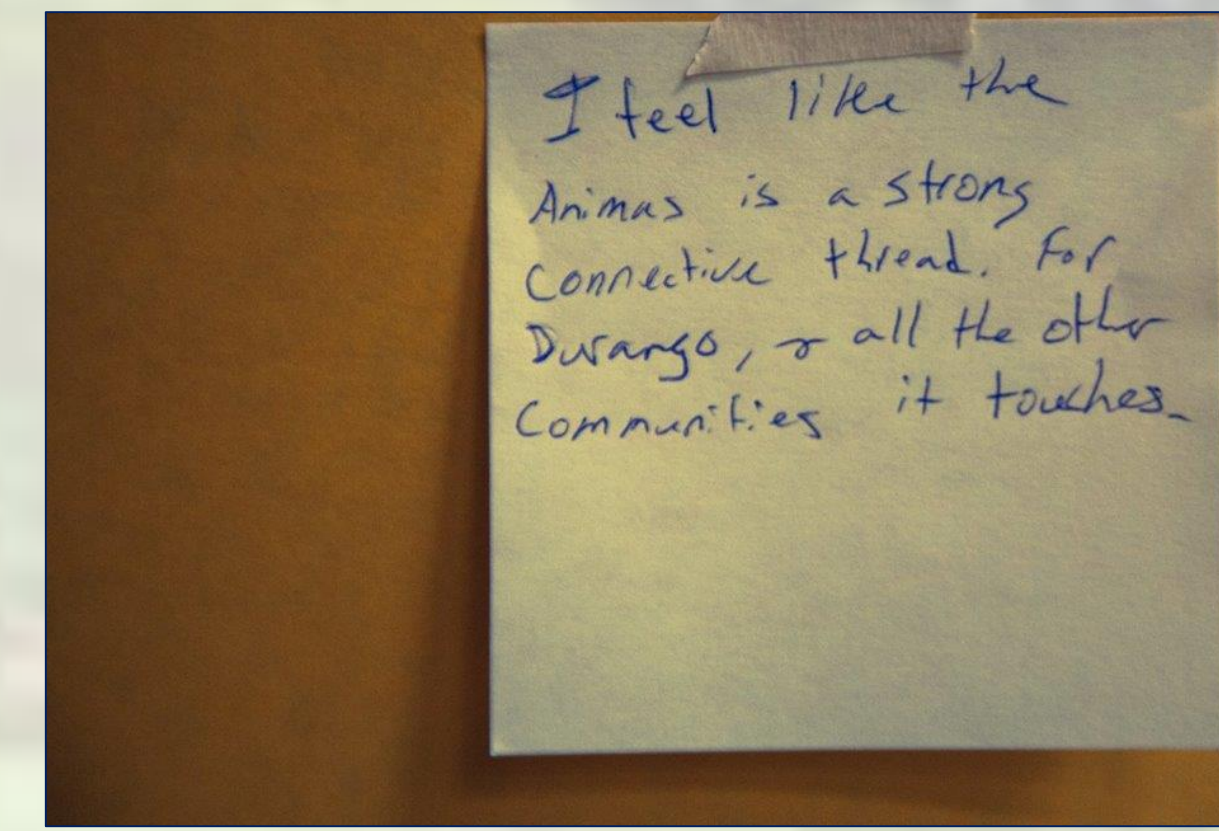 I feel like the
Animas is a strong
Connective thread. For
Durango, & all the other
Communities it touches.